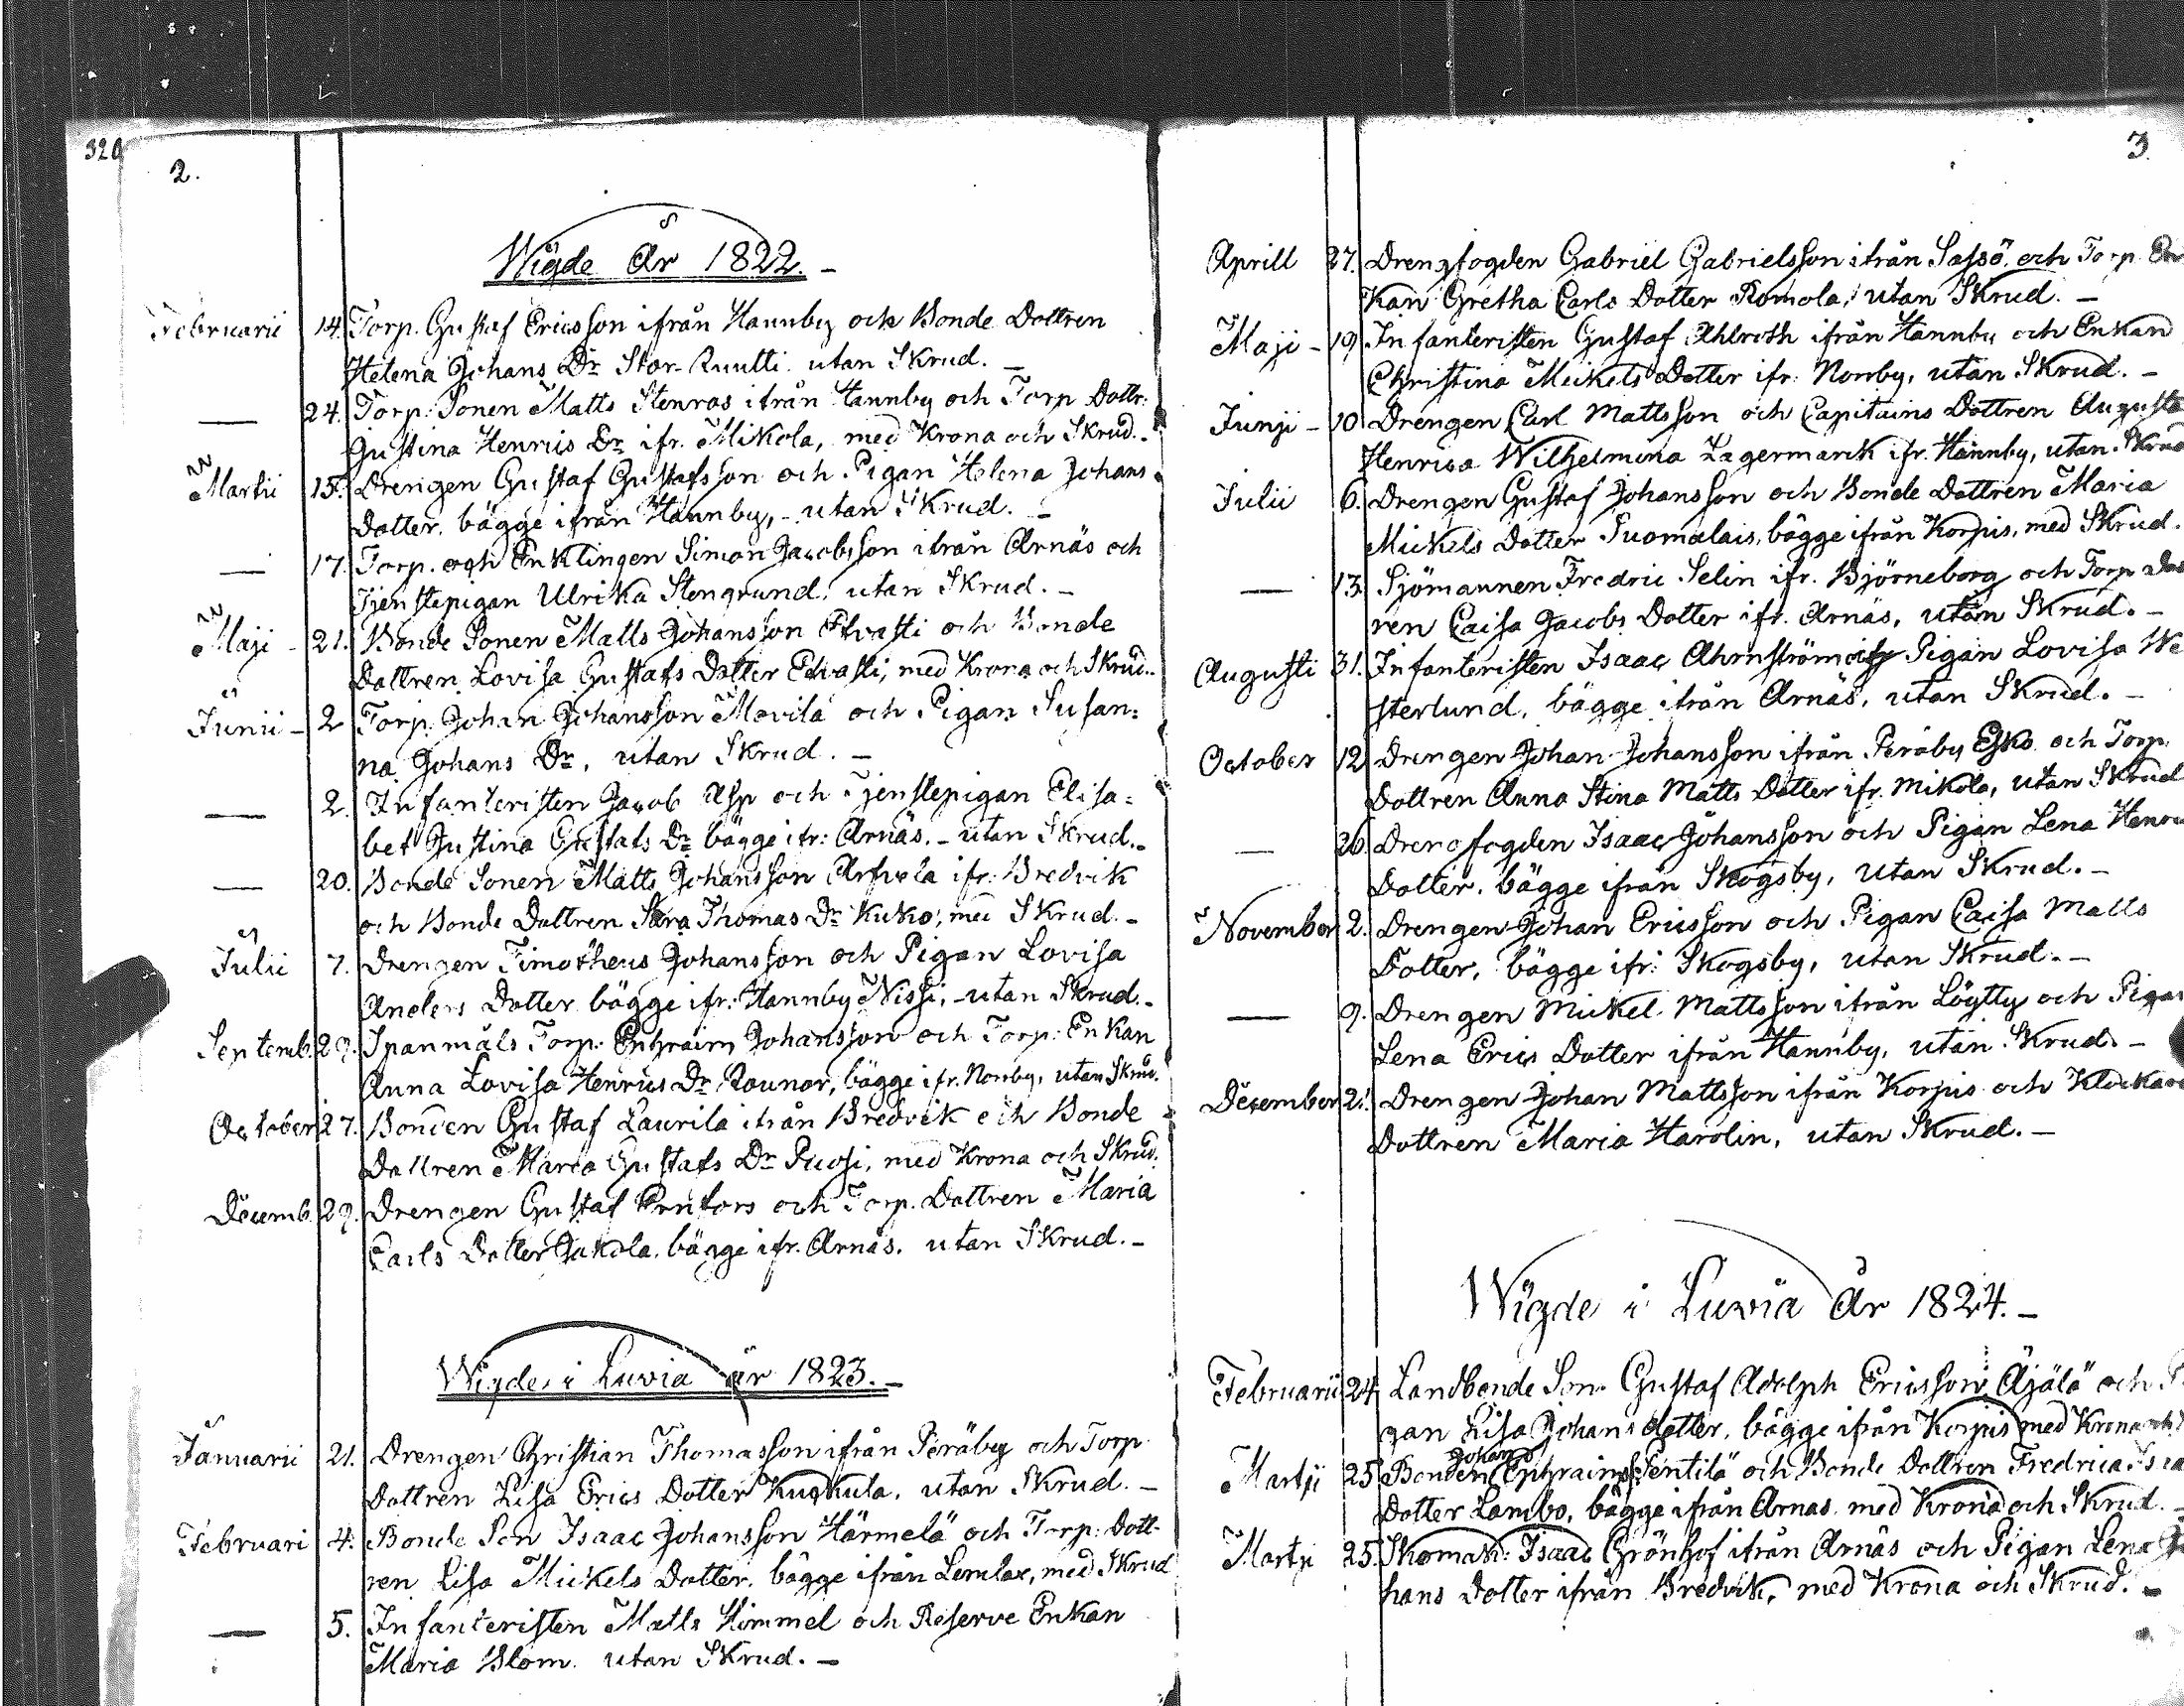 320
2.
Wigde År 1822.-
Februarii 14. Torp. Gustaf Ericsson ifrån Hannby och Bonde Dottren
Helena Johans Dr Stor-Ruutti utan Skrud. -
— 24. Torp: Sonen Matts Stenros ifrån Hannby och Torp Dottr:
Justina Henrics Dr ifr. Mikola, med Krona och Skrud.-
Martii 15. Drengen Gustaf Gustafsson och Pigan Helena Johans
Dotter, bägge ifrån Hannby, - utan Skrud. -
— 17. Torp. och Enklingen Simon Jacobsson ifrån Arnäs och
Tjenstepigan Ulrika Stengrund, utan Skrud. -
Maji - 21. Bonde Sonen Matts Johansson och Bonde
Dottren Lovisa Gustafs Dotter med Krona och Skrud.-
Junii - 2 Torp. Johan Johansson Movila och Pigan Susan=
na Johans Dr, utan Skrud. -
— 2. Infanteristen Jacob Asp och Tjenstepigan Elisa=
bet Justina Gustafs Dr bägge ifr: Arnäs. - utan Skrud.-
— 20. Bonde Sonen Matts Johansson Arfvela ifr: Bredvik
och Bonde Dottren Sara Thomas Dr Kuko, med Skrud.-
Julii 7. Drengen Timotheus Johansson och Pigan Lovisa
Anders Dotter bägge ifr: Hannby Nissi, - utan Skrud.-
Septemb. 29. Spanmåls Torp. Ephraim Johansson och Torp: Enkan
Anna Lovisa Henrics Dr Rounor, bägge ifr. Norrby, utan Skrud.
October 27. Bonden Gustaf Laurila ifrån Bredvik och Bonde
Dottren Maria Gustafs Dr Puosi, med Krona och Skrud.
Decemb. 29. Drengen Gustaf och Torp. Dottren Maria
Carls Dotter Jakola, bägge ifr. Arnäs, utan Skrud.-
Wigde i Luvia år 1823.-
Januarii 21. Drengen Christian Thomasson ifrån Peräby och Torp
Dottren Lisa Erics Dotter utan Skrud. -
Februari 4. Bonde Son Isaac Johansson Härmelä och Torp: Dott-
ren Lisa Mickels Dotter, bägge ifrån Lemlax, med Skrud
— 5. Infanteristen Matts Himmel och Reserve Enkan
Maria Blom. utan Skrud. -
3.
Aprill 27. Drengfogden Gabriel Gabrielsson ifrån Sassö och Torp. En
kan Gretha Carls Dotter Romola, utan Skrud. -
Maji - 19 Infanteristen Gustaf Ahlroth ifrån Hannby och Enkan
Christina Mickels Dotter ifr: Norrby, utan Skrud. -
Junji - 10 Drengen Carl Mattsson och Capitains Dottren Augusta
Henrica Wilhelmina Lagermarck ifr. Hannby, utan Skrud
Julii 6. Drengen Gustaf Johansson och Bonde Dottren Maria
Mickels Dotter Suomalais, bägge ifrån Korpis, med Skrud.
— 13. Sjömannen Fredric Selin ifr. Björneborg och Torp Dott
ren Caisa Jacobs Dotter ifr. Arnäs, utan Skrud. -
Augusti 31. Infanteristen Isaac Ahrnström och Pigan Lovisa We
sterlund, bägge ifrån Arnäs, utan Skrud. -
October 12 Drengen Johan Johansson ifrån Peräby Esko och Torp.
Dottren Anna Stina Matts Dotter ifr. Mikola, utan Skrud
— 26. Drengfogden Isaac Johansson och Pigan Lena Henrics
Dotter, bägge ifrån Skogsby, utan Skrud. -
November 2. Drengen Johan Ericsson och Pigan Caisa Matts
Dotter, bägge ifr: Skogsby, utan Skrud. -
— 9. Drengen Mickel Mattsson ifrån Löytty och Pigan
Lena Erics Dotter ifrån Hannby, utan Skrud. -
December 21. Drengen Johan Mattsson ifrån Korpis och Klockare
Dottren Maria Harolin, utan Skrud. -
Wigde i Luvia År 1824.-
Februarii 24 Landbonde Son Gustaf Adolph Ericsson Äjälä och Pi
gan Lisa Johans dotter, bägge ifrån Korpis med Krona och
Johans
Martii 25 Bonden Ephraim Pentilä och Bonde Dottren Fredrica Isaa
Dotter Lambo, bägge ifrån Arnäs med Krona och Skrud. -
Martii 25. Skomak: Isaac Grönhof ifrån Arnäs och Pigan Lena Jo
hans Dotter ifrån Bredvik, med Krona och Skrud. -